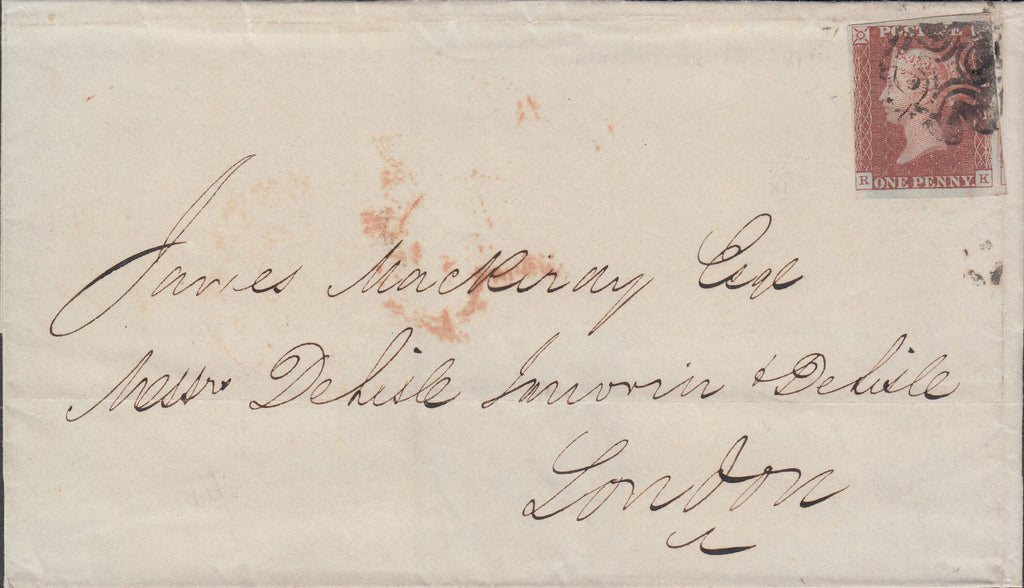 POSTAGE
R ONE PENNY. K
James Mackiray Esqe
Messrs De Lisle Janvrin & De Lisle
London